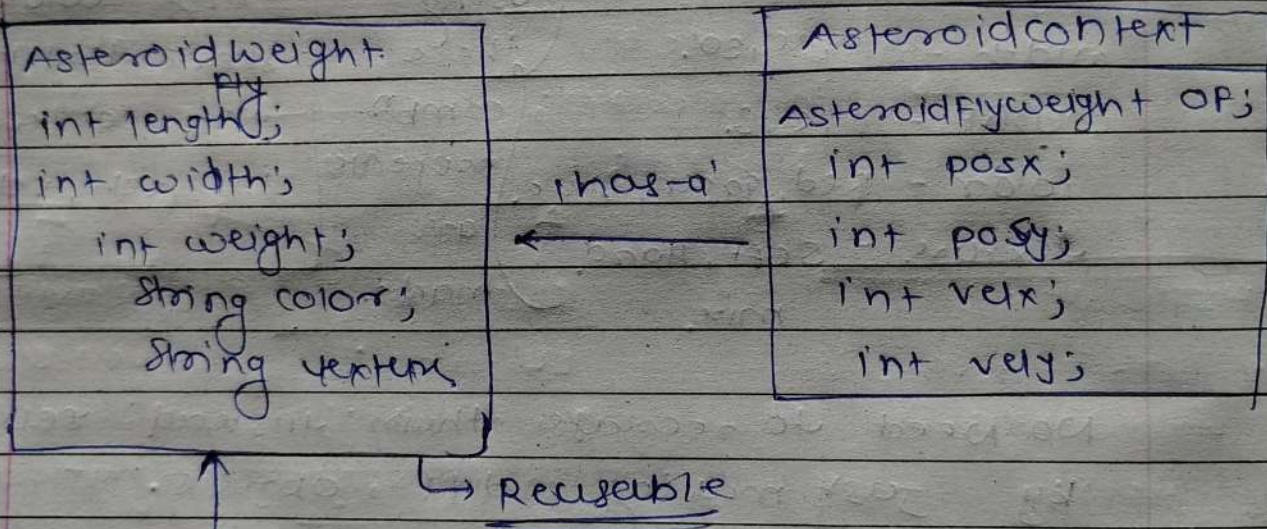 Asteroidweight
Fly
int length;
int width;
int weight;
String color;
String
'has-a'
Asteroidcontext
AsteroidFlyweight OF;
int posx;
int posy;
int velx;
int vely;
↳ Reuseable